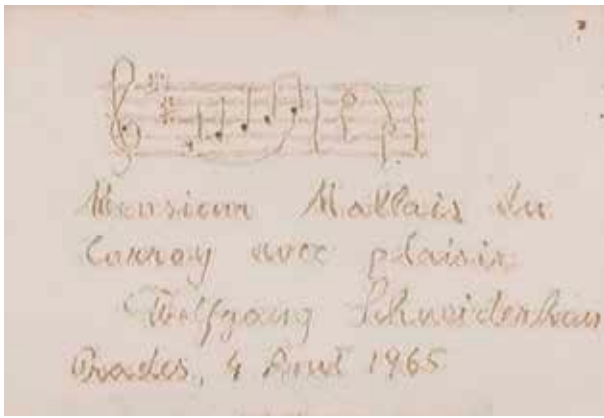 Monsieur Mallais du
Carroy avec plaisir
Wolfgang Schneiderhan
Prades, 4 Août 1965